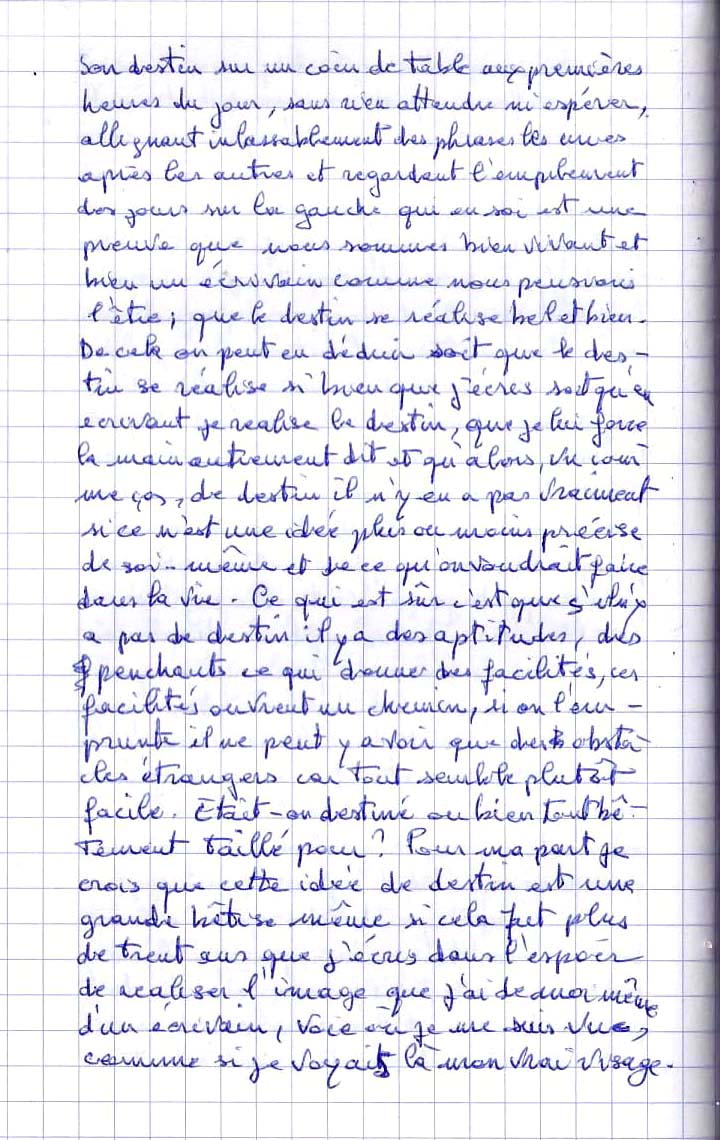 son destin sur un coin de table aux premières
heures du jour, sans rien attendre ni espérer,
allignant inlassablement des phrases les unes
après les autres et regardant l'empilement
des jours sur la gauche qui en soi est une
preuve que nous sommes bien vivant et
bien un écrivain comme nous pensions
l'être; que le destin se réalise bel et bien.
De cela on peut en déduir soit que le des-
tin se réalise si bien que j'écris soit qu'en
ecrivant je realise le destin, que je lui force
la main autrement dit et qu'alors, vu com
me ça, de destin il n'y en a pas vraiment
si ce n'est une idée plus ou moins précise
de soi-même et de ce qu'on voudrait faire
dans la vie. Ce qui est sûr c'est que s'il n'y
a pas de destin il y a des aptitudes, des
penchants ce qui donner des facilités, ces
facilités ouvrent un chemin, si on l'em-
prunte il ne peut y avoir que des obsta-
cles étrangers car tout semble plutôt
facile. Etait-on destiné ou bien tout bê-
tement taillé pour? Pour ma part je
crois que cette idée de destin est une
grande bêtise même si cela fut plus
de trent ans que j'écris dans l'espoir
de realiser l'image que j'ai de moi même
d'un écrivain, voie où je me suis vue,
comme si je voyais là mon vrai visage.